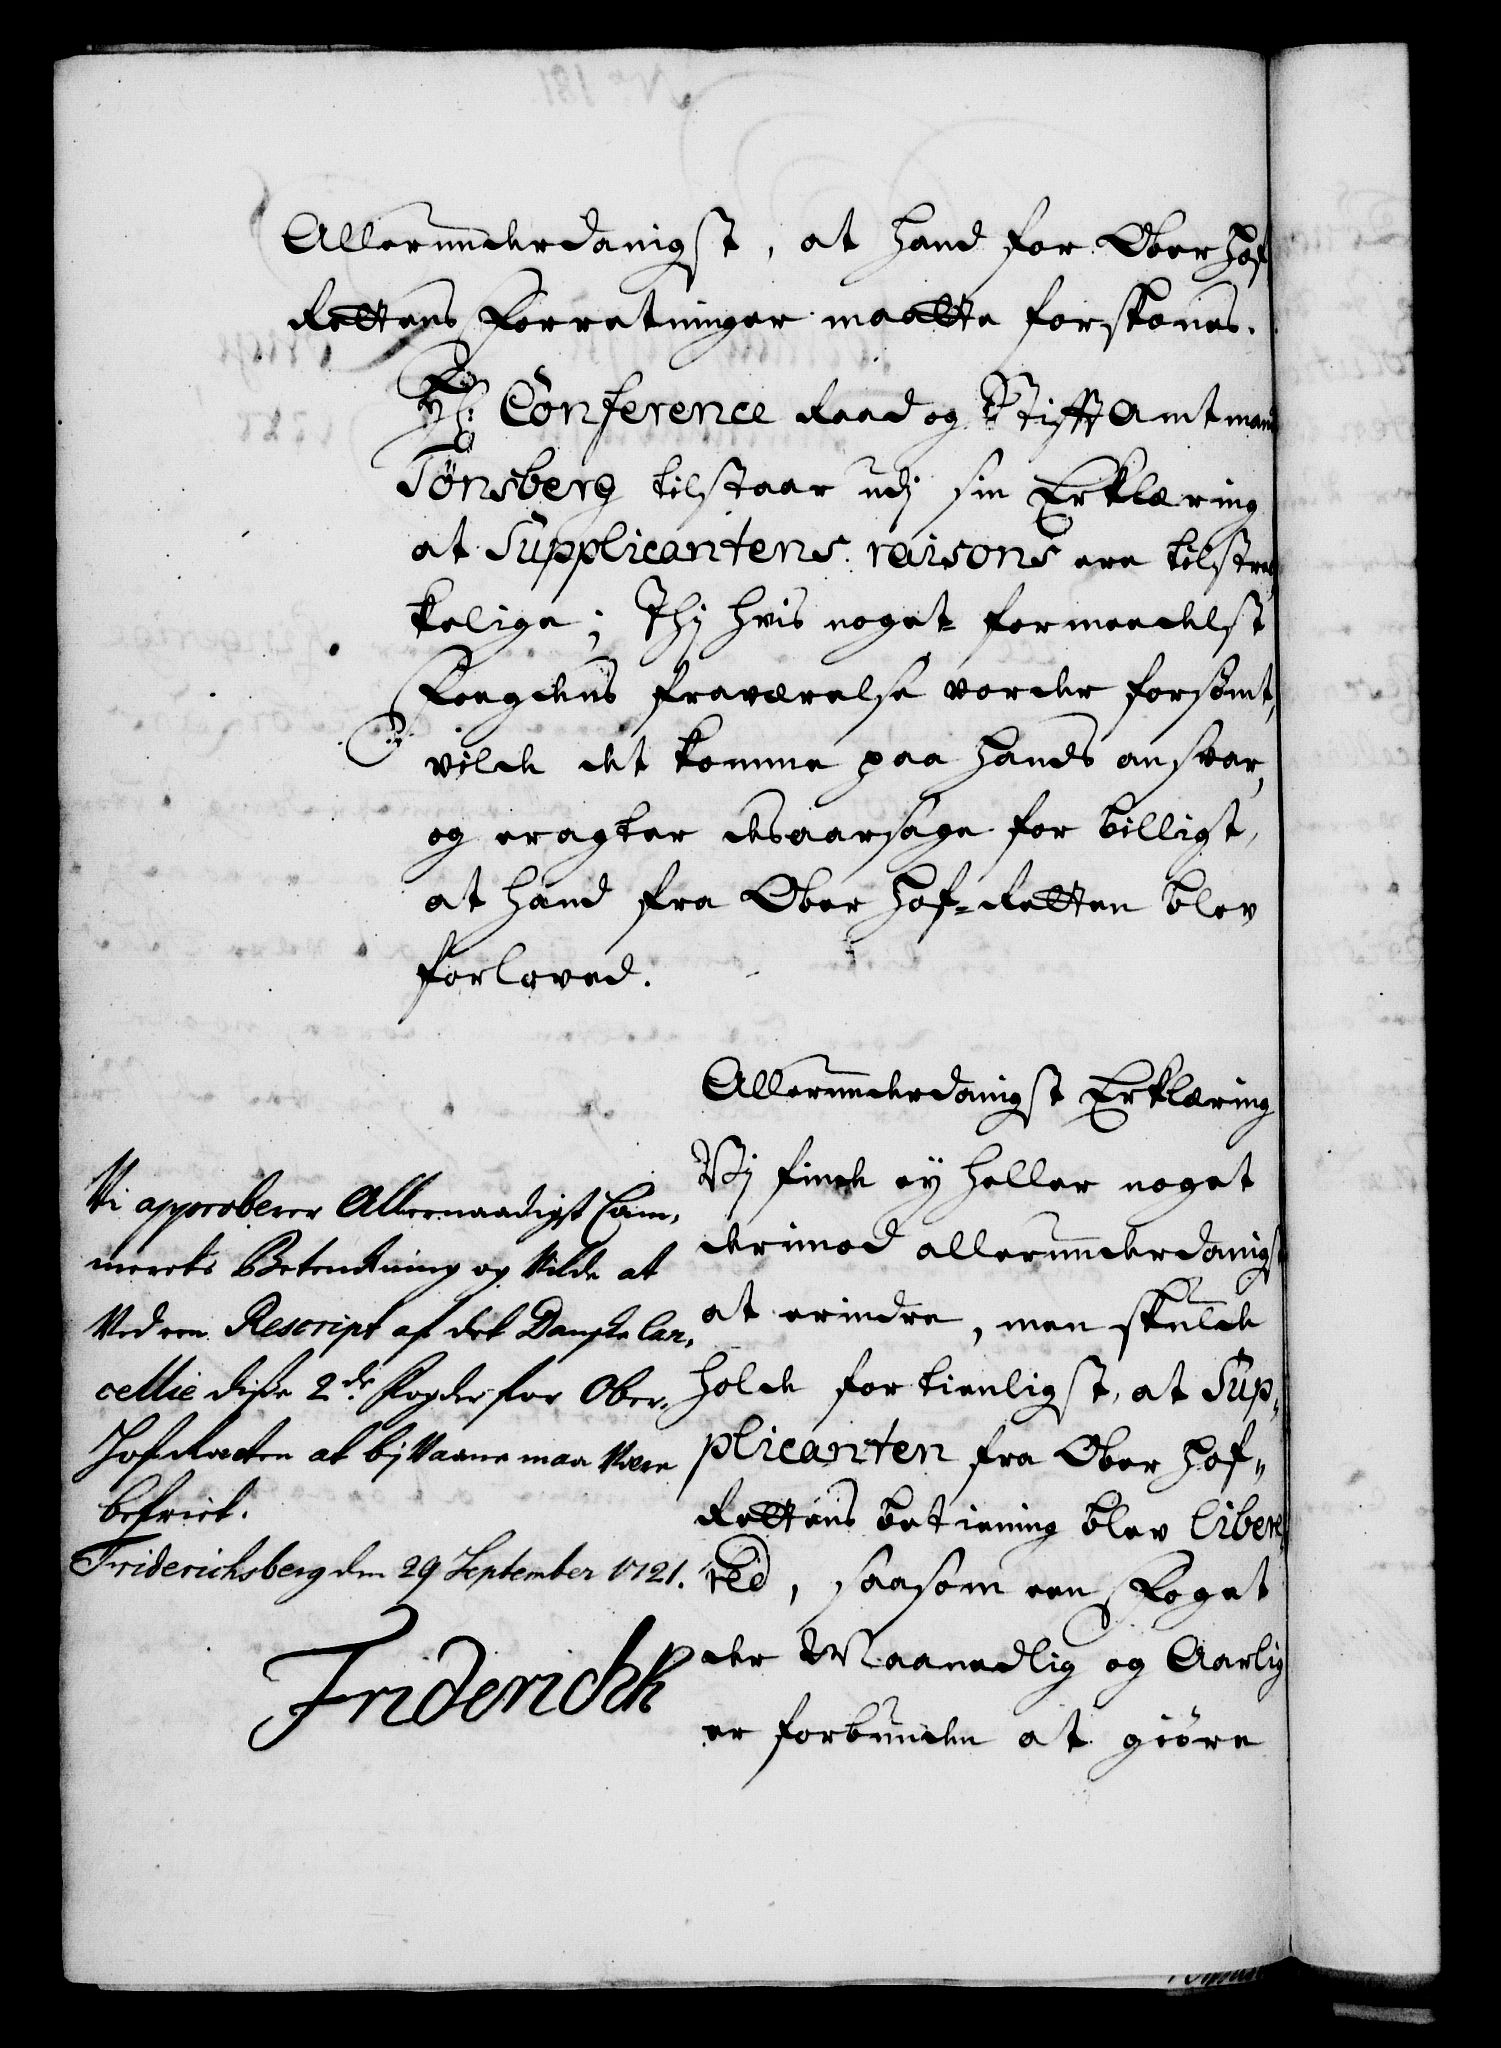 Allerunderdanigst, at hand for Ober Hof
Rettens Forretninger maatte forskones.
Hr: Conference Raad og Stifft Amtmand
Tønsberg tilstaar udj sin Erklæring
at Supplicantens raisons ere tilstræk
kelige; Thj hvis noget formedelst
Fogdens fraværelse vorder forsømt,
vilde det komme paa hands ansvar,
og eragter desaarsage for billigt,
at hand fra Ober Hof-Retten blev
forloved.
Allerunderdanigst Erklæring
Vj finde ey heller noget
derimod allerunderdanigst
at erindre, men skulde
holde fortienligst, at Sup-
plicanten fra Ober Hof-
Rettens betiening blev libere-
red, saasom een Foget
der Maanedlig og Aarlig
er forbunden at giøre
Vi approberer Allernaadigst Cam-
merets Betenkning og Vilde at
Ved een Rescript af det Danske Can-
cellie disse 2de Fogder for Ober-
Hof-Retten at bijVaane maa Være
befriet.
Friderichsberg den 29 September 1721.
Friderich R